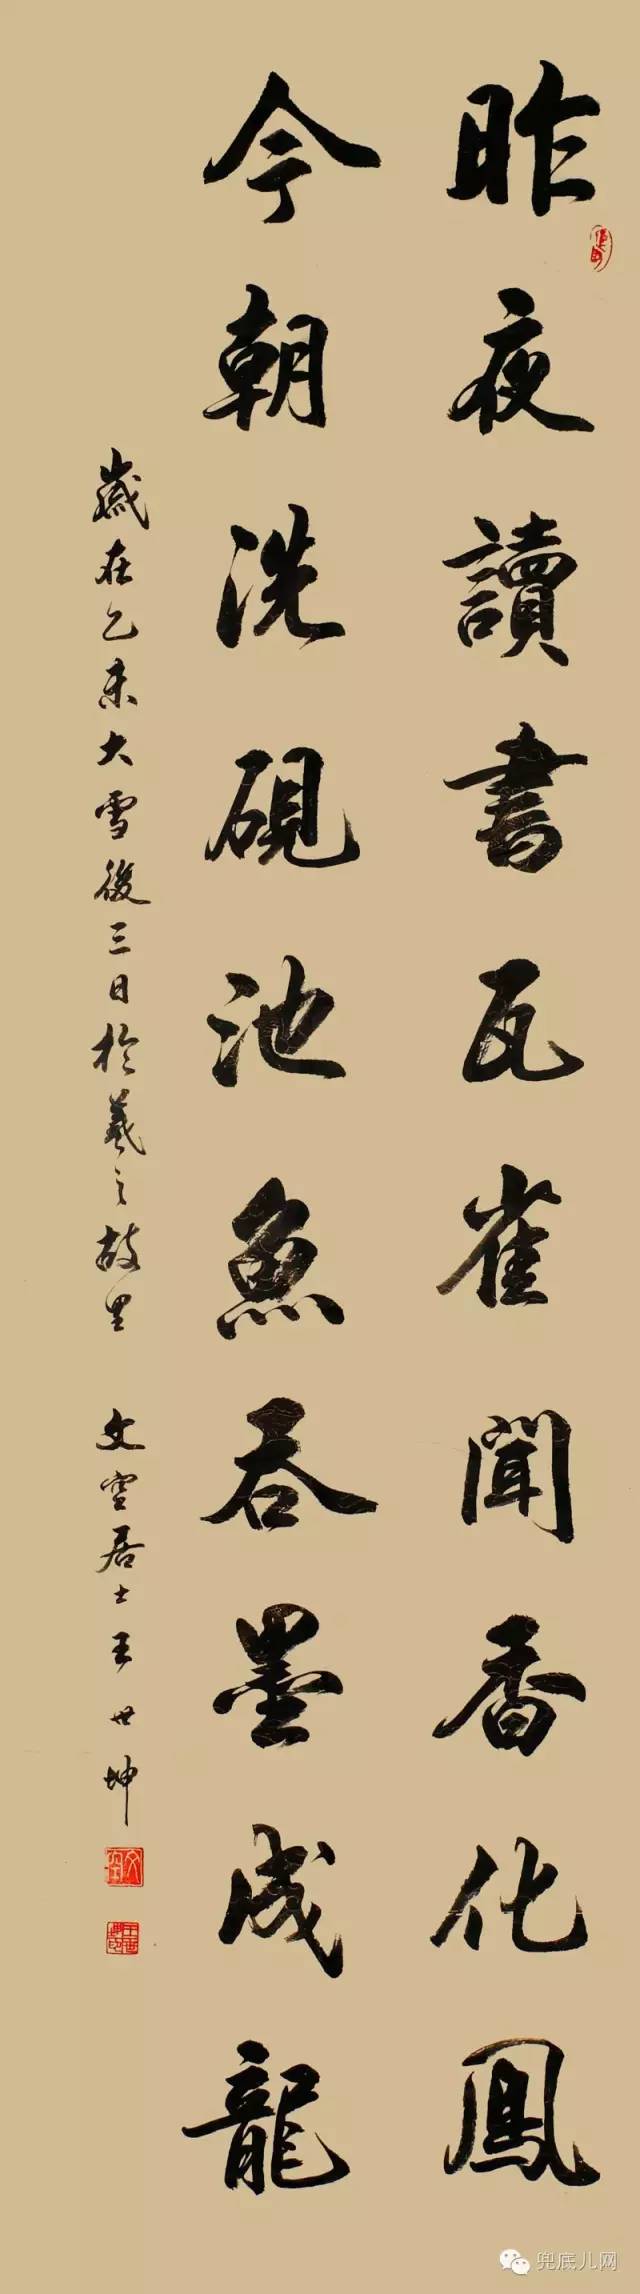 昨夜讀書瓦雀聞香化鳳
今朝洗硯池魚吞墨成龍
歲在乙未大雪後三日於羲之故里 文空居士王世坤
兜底儿网